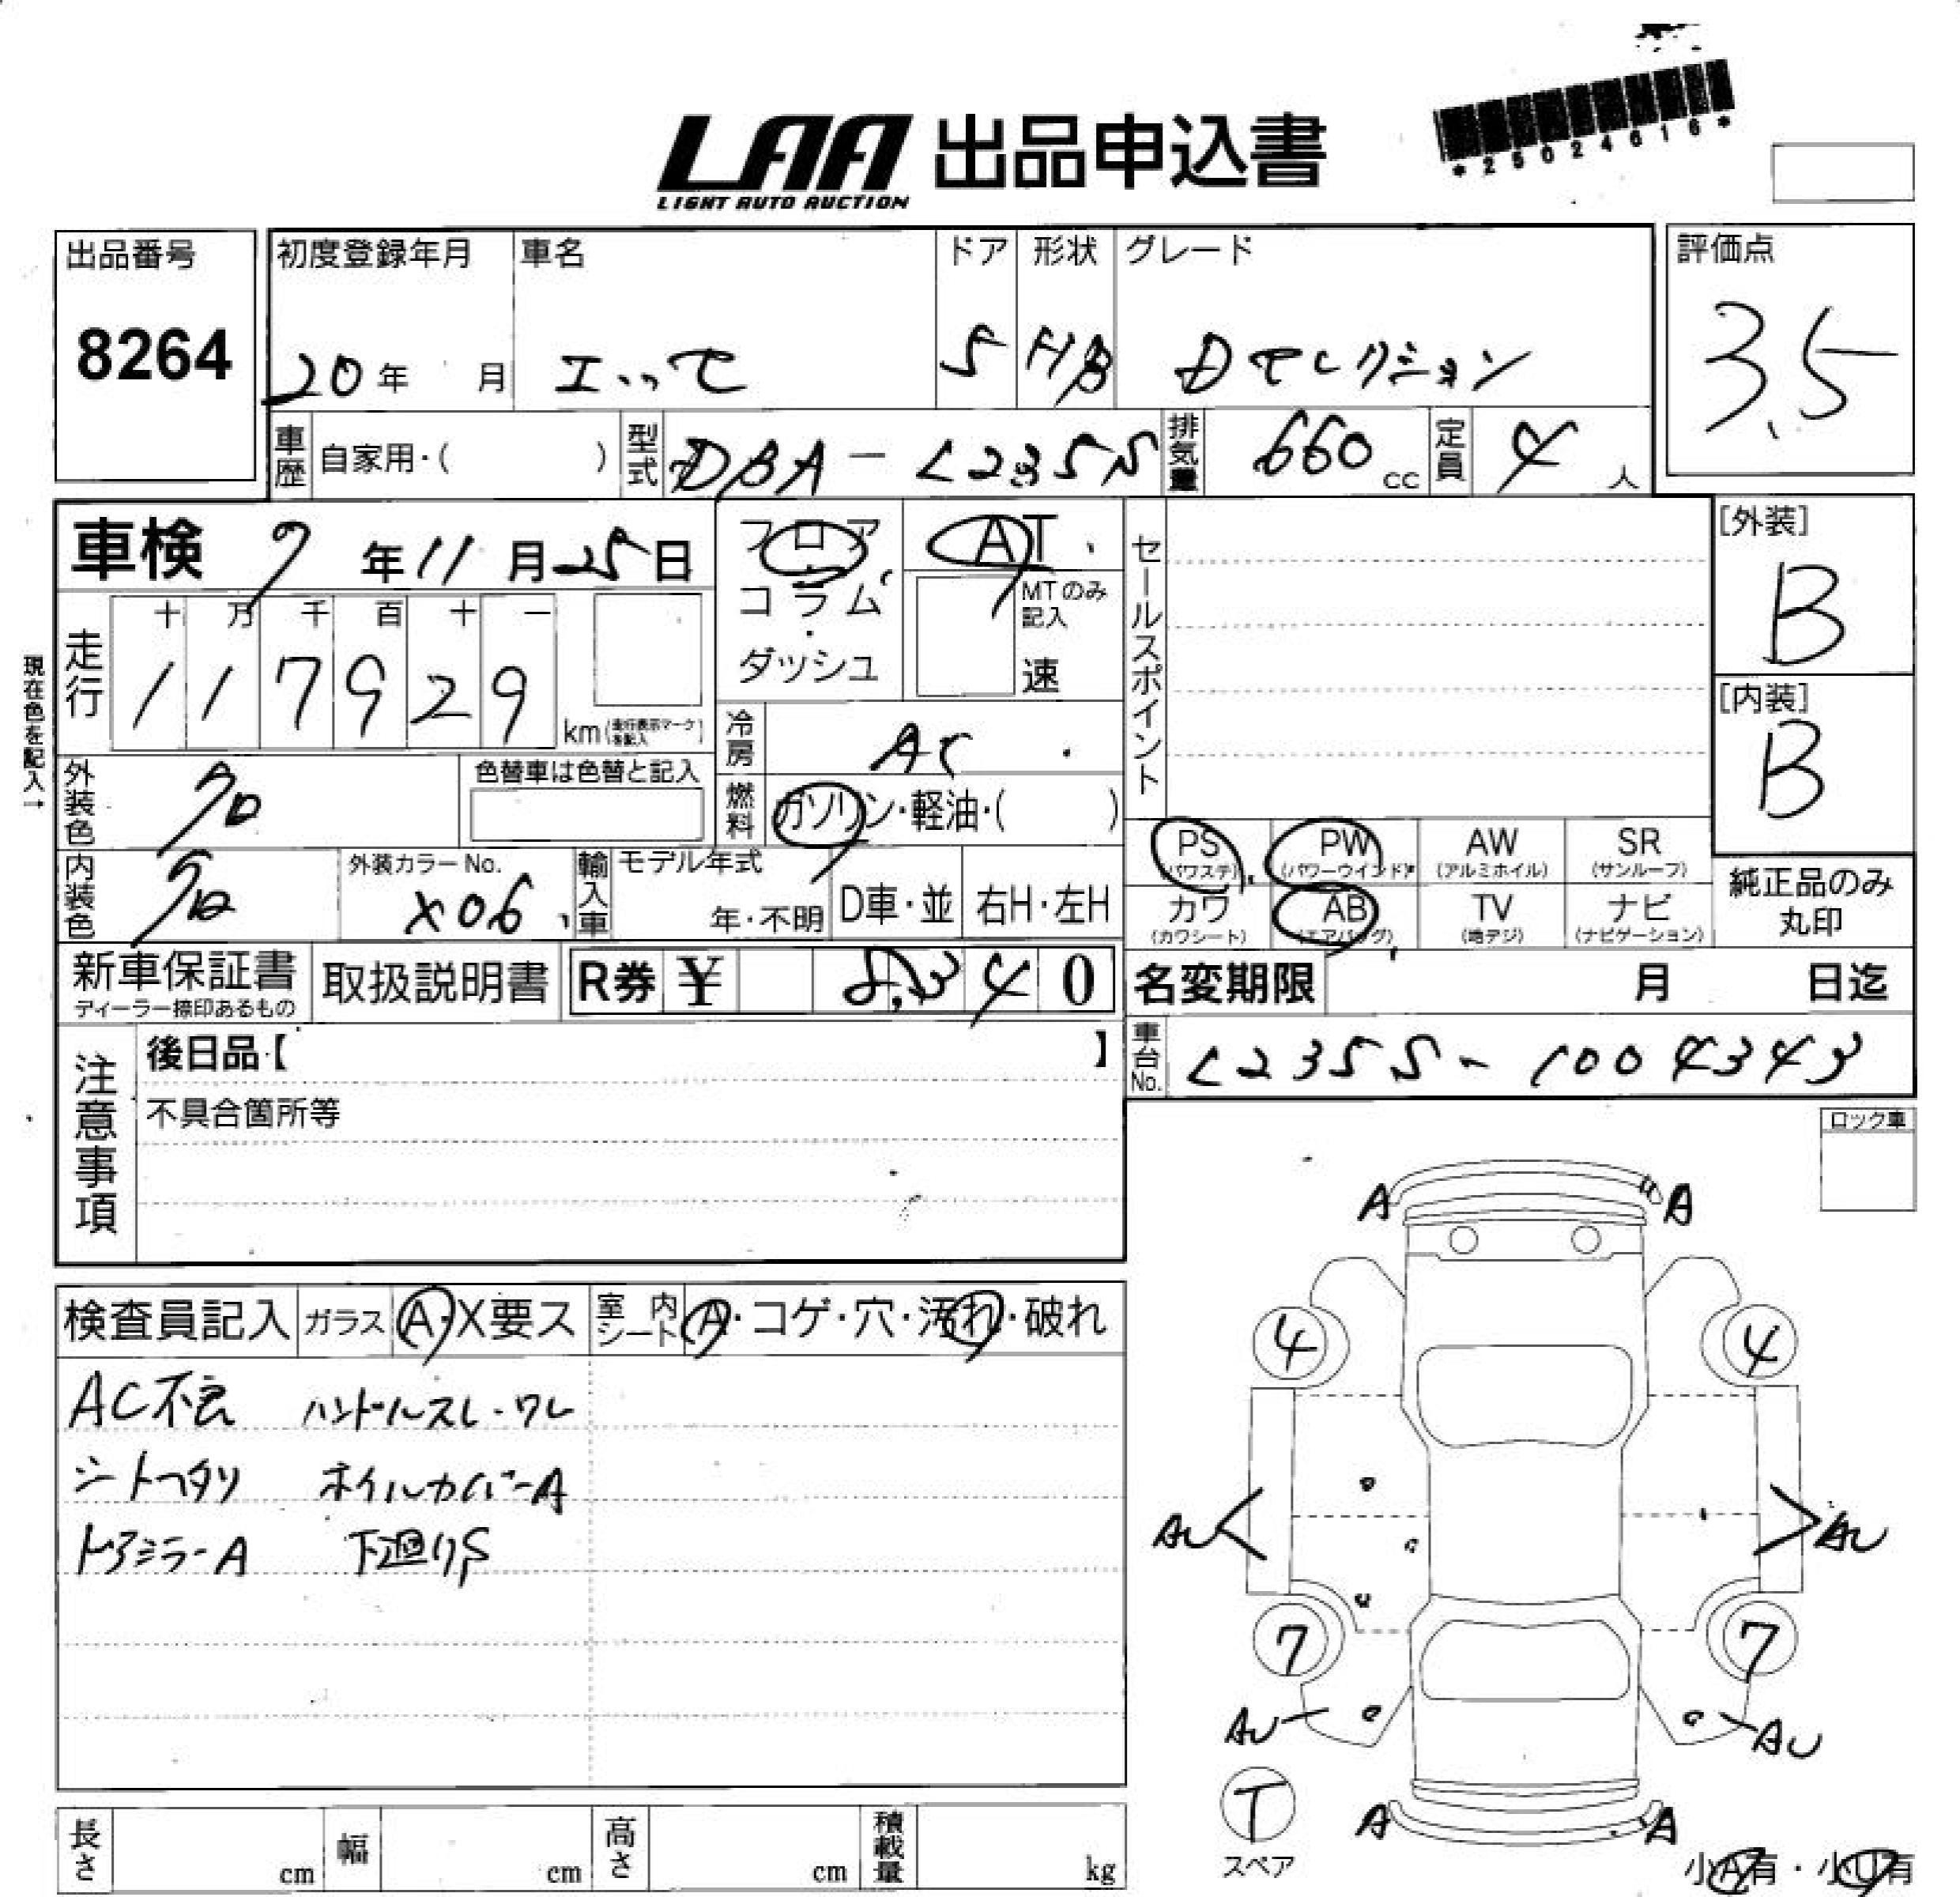 *25024616*
LAA 出品申込書
LIGHT AUTO AUCTION
出品番号 初度登録年月 車名 ドア 形状 グレード 評価点
8264 20年 月 エッセ 5 HB Dセレクション 3.5
車歴 自家用・( ) 型式 DBA-L235S 排気量 660cc 定員 4人
車検 9年11月25日 フロア AT セールスポイント [外装]
コラム・ MTのみ記入 B
走行 十 万 千 百 十 一 ダッシュ 速 [内装]
117929 km(走行表示マークを記入) B
現在色を記入→
冷房 AC
外装色 クロ 色替車は色替と記入 燃料 ガソリン・軽油・( )
PS PW AW SR
(パワステ) (パワーウインドー) (アルミホイル) (サンルーフ) 純正品のみ
内装色 クロ 外装カラーNo. X06 輸入車 モデル年式 年・不明 D車・並 右H・左H 丸印
カワ AB TV ナビ
(カワシート) (エアバッグ) (地デジ) (ナビゲーション)
新車保証書 取扱説明書 R券 ¥ 8,340 名変期限 月 日迄
ディーラー捺印あるもの
注意事項 後日品【 】 車台No. L235S-1004343
不具合箇所等 ロック車
A A
検査員記入 ガラス A・X要ス 室内シート A・コゲ・穴・汚れ・破れ 4 4
AC不良 ハンドルスレ・ワレ
シートヘタリ ホイルカバーA
AU AU
ドアミラーA 下廻りS
7 7
AU AU
T
スペア A A
長さ cm 幅 cm 高さ cm 積載量 kg 小A有・小U有